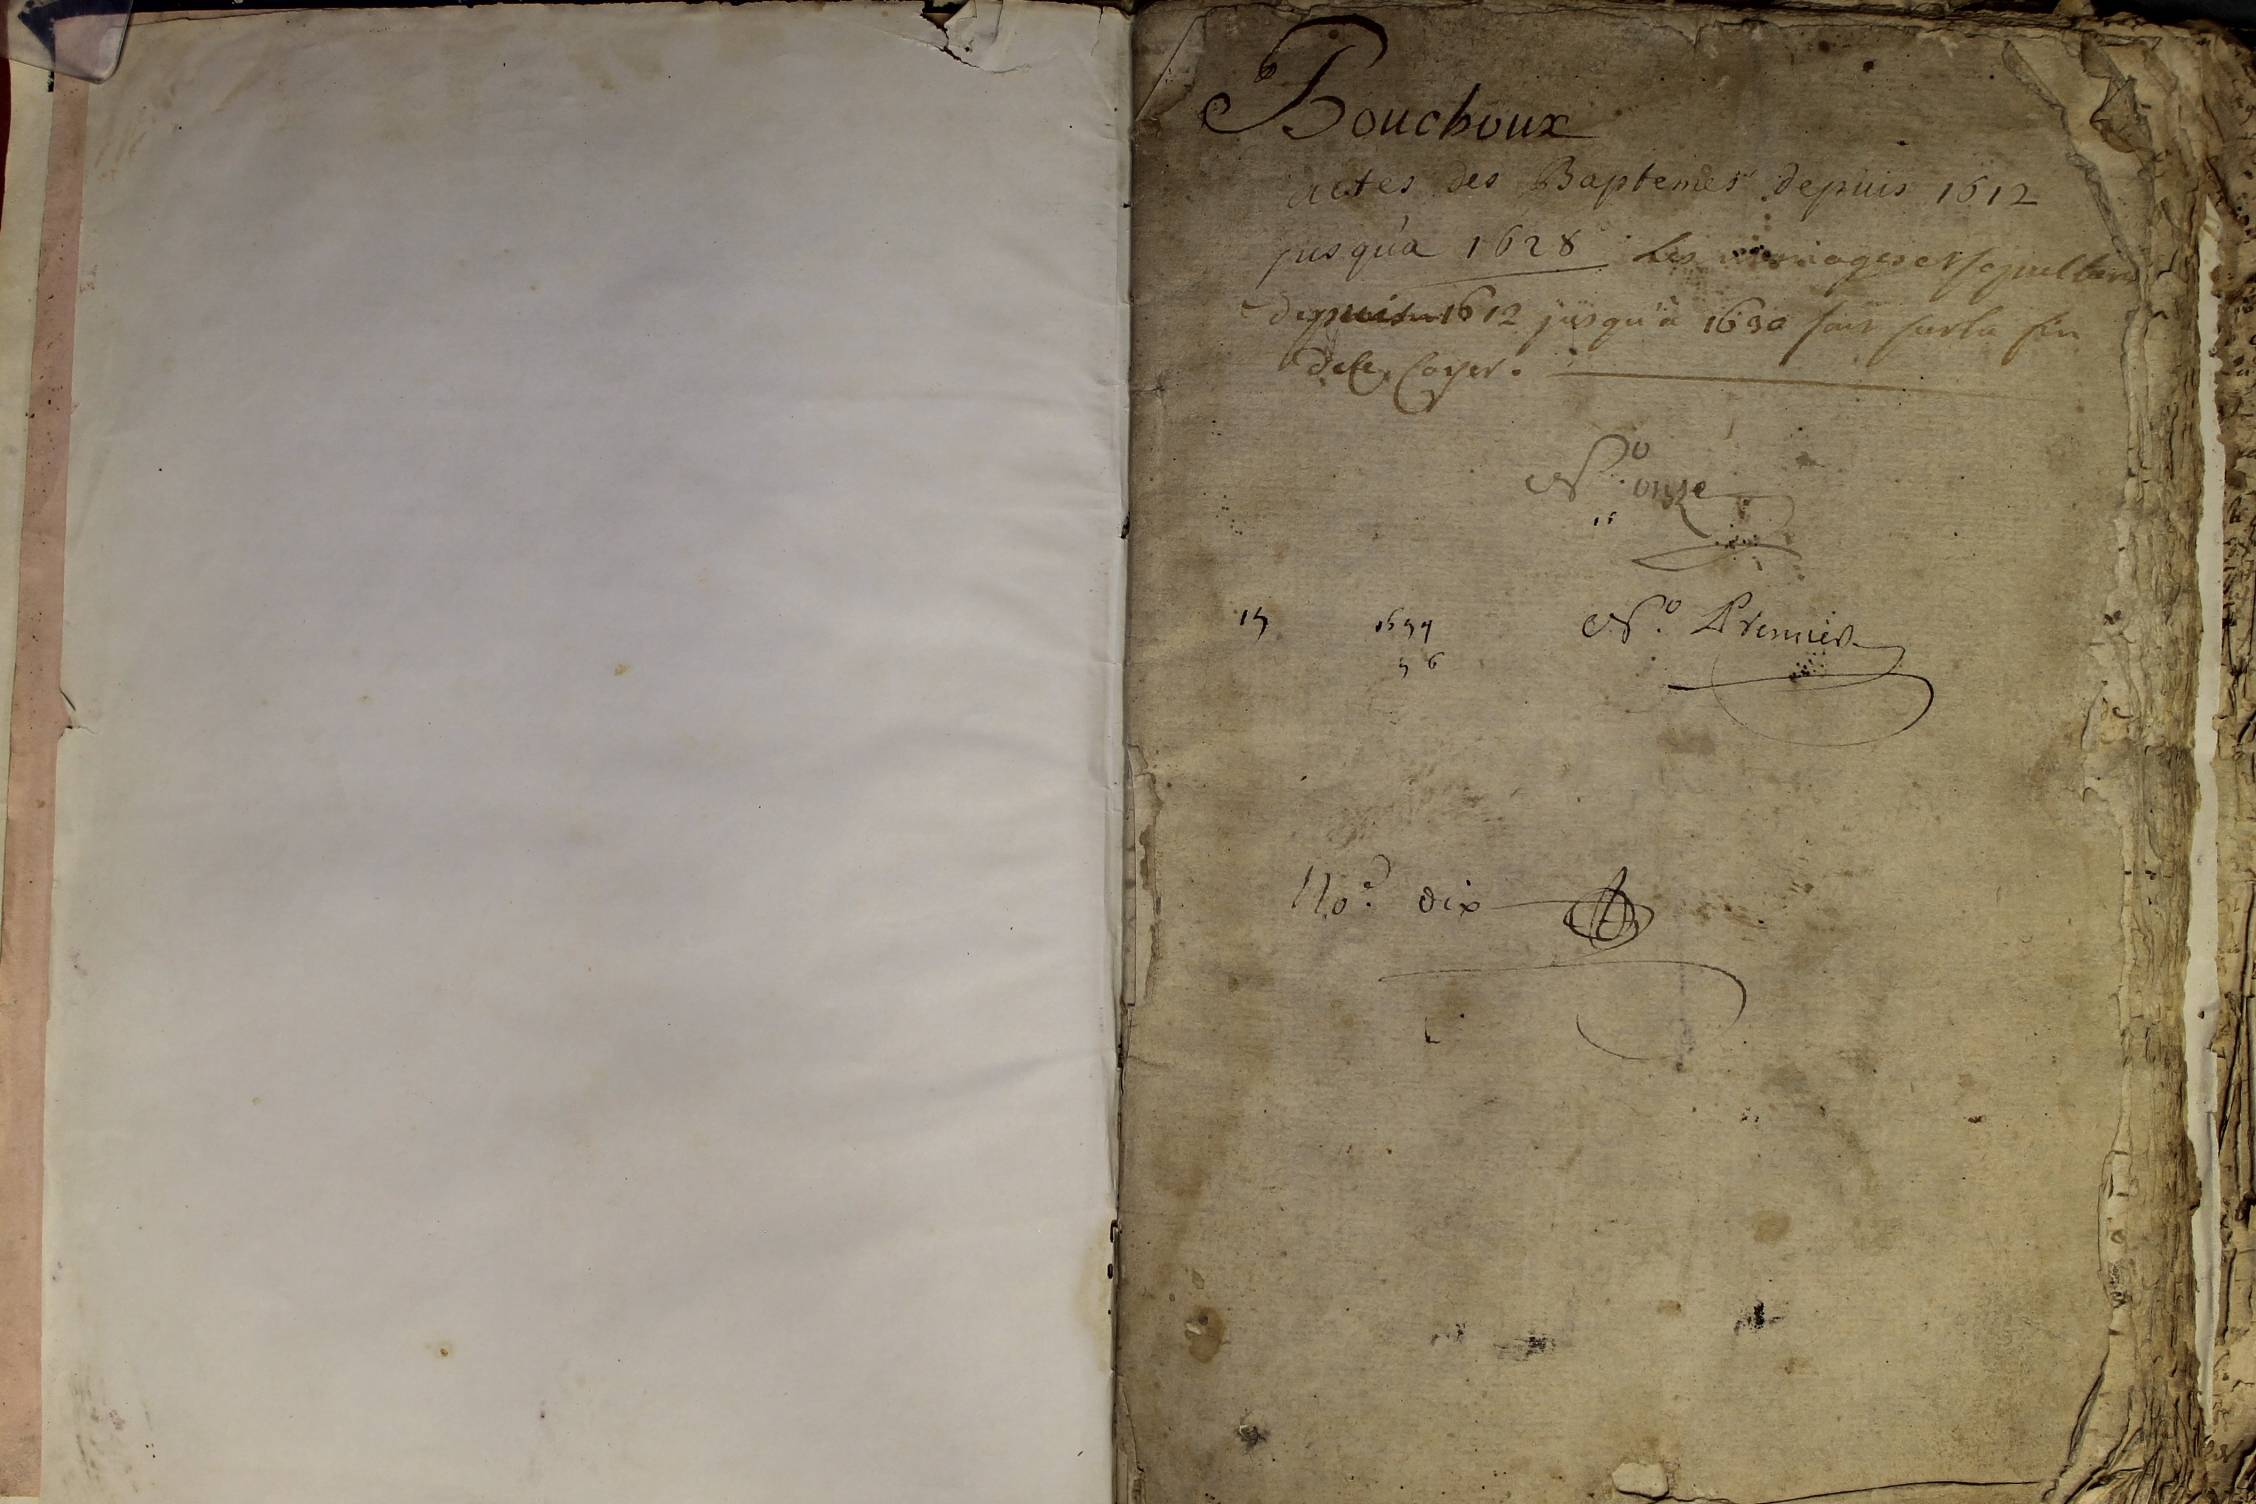 Bouchoux
actes des Baptemes depuis 1612
jusqu'a 1628 Les mariages et sepultures
depuis 1612 jusqu'a 1630 sont sur la fin
de ce Cayer.
No onze
15
No. Premier
No. dix